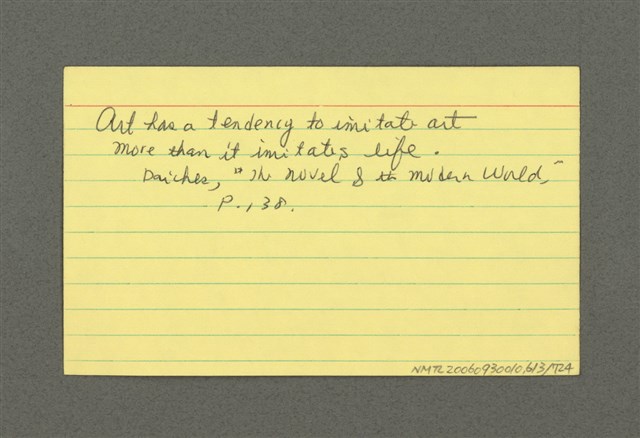 Art has a tendency to imitate art
more than it imitates life.
Daiches, "The Novel & the Modern World,"
P. 138.
NMTL20060930010,613/724